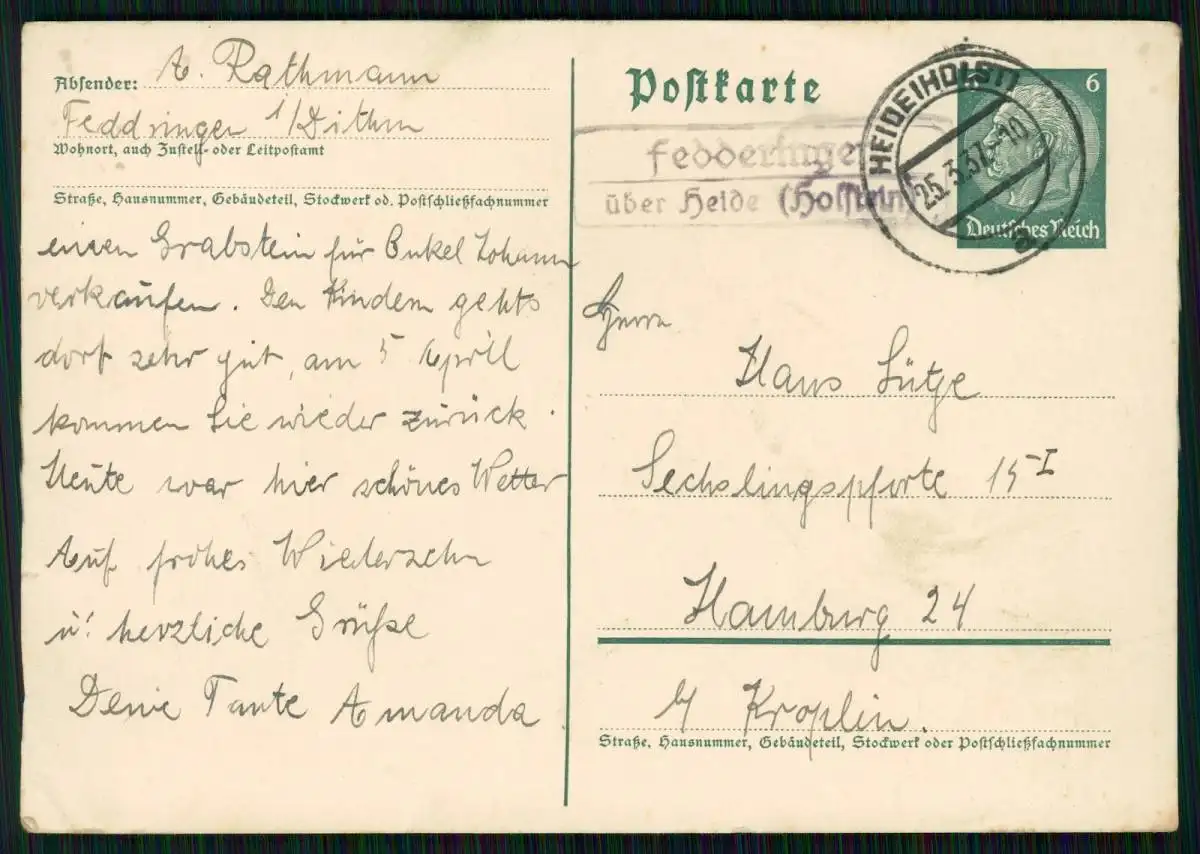 Absender: A. Rathmann
Feddringen i/Dithm
Wohnort, auch Zustell- oder Leitpostamt
Straße, Hausnummer, Gebäudeteil, Stockwerk od. Postschließfachnummer
einen Grabstein für Onkel Johann
verkaufen. Den Kindern gehts
dort sehr gut, am 5 April
kommen Sie wieder zurück.
Heute war hier schönes Wetter
Auf frohes Wiedersehn
u. herzliche Grüße
Deine Tante Amanda.
Postkarte
Fedderingen
über Heide (Holstein)
HEIDE (HOLST)
25.3.37.-10
a
6
Deutsches Reich
Herrn
Hans Lütje
Sechslingspforte 15 I
Hamburg 24
b/ Kroplin.
Straße, Hausnummer, Gebäudeteil, Stockwerk oder Postschließfachnummer